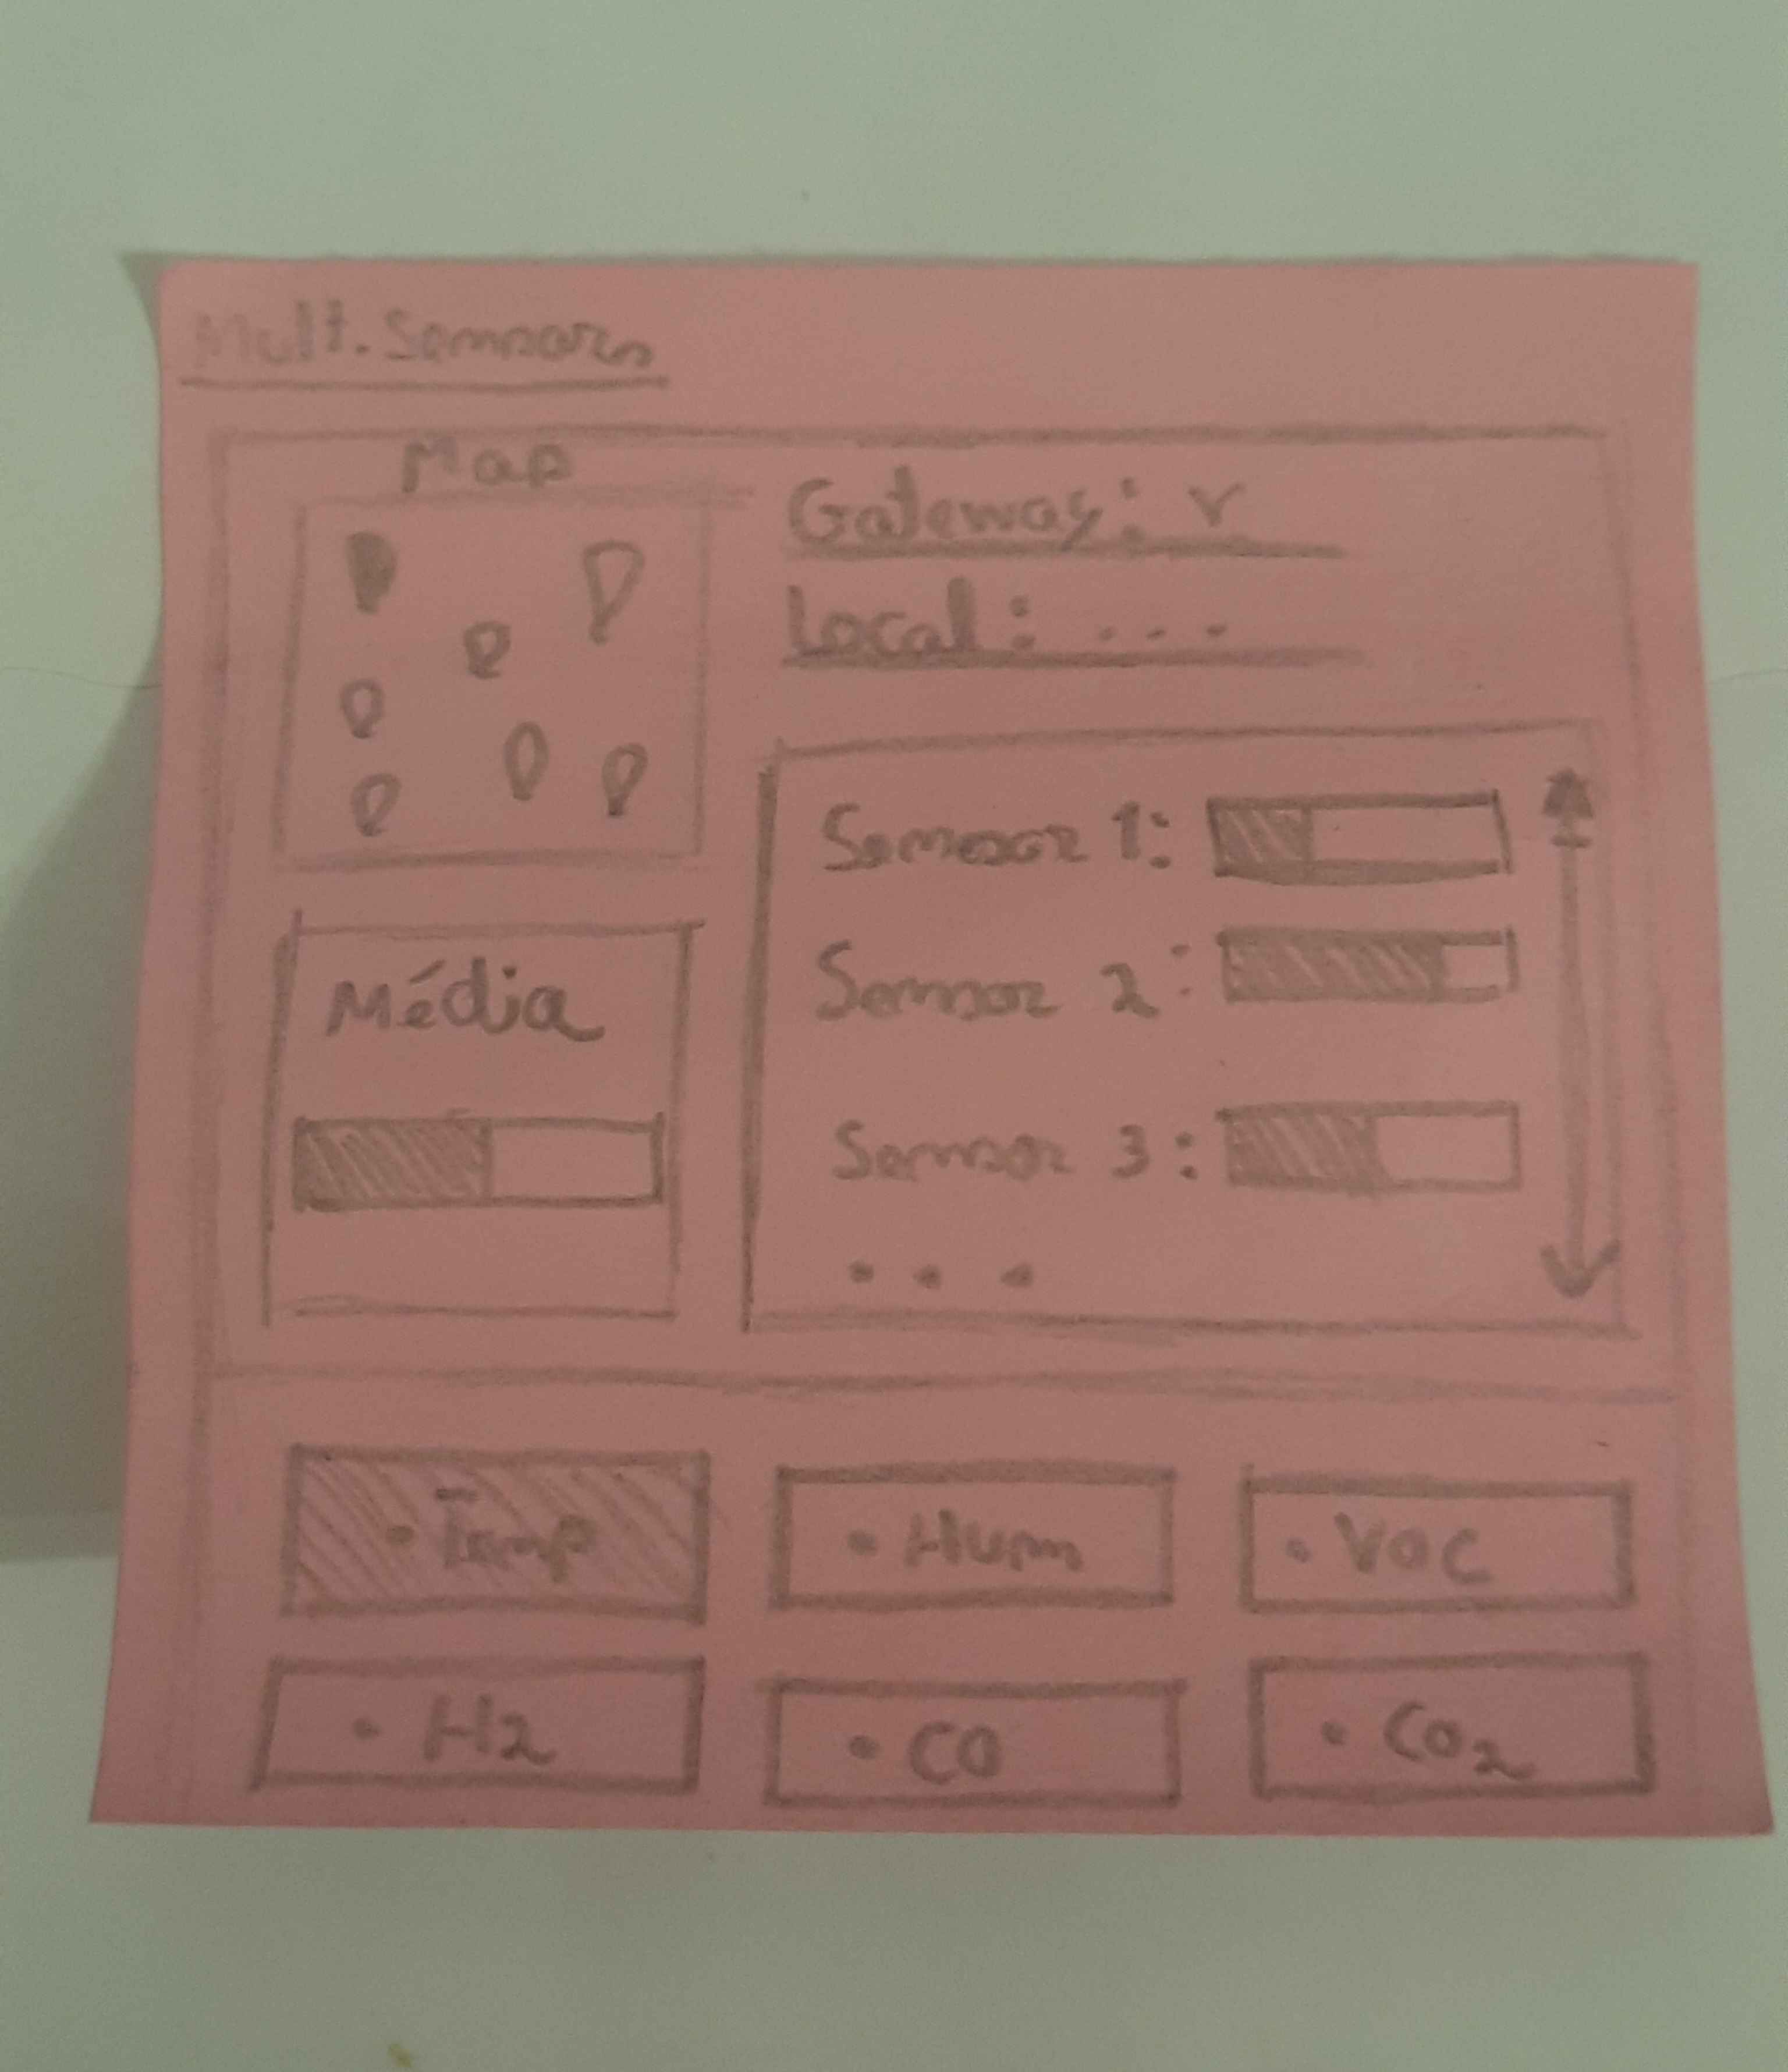 Mult. Sensors
Map
Gateway: v
Local: ...
Sensor 1:
Sensor 2:
Sensor 3:
...
Média
• Temp
• Hum
• VOC
• H2
• CO
• CO₂